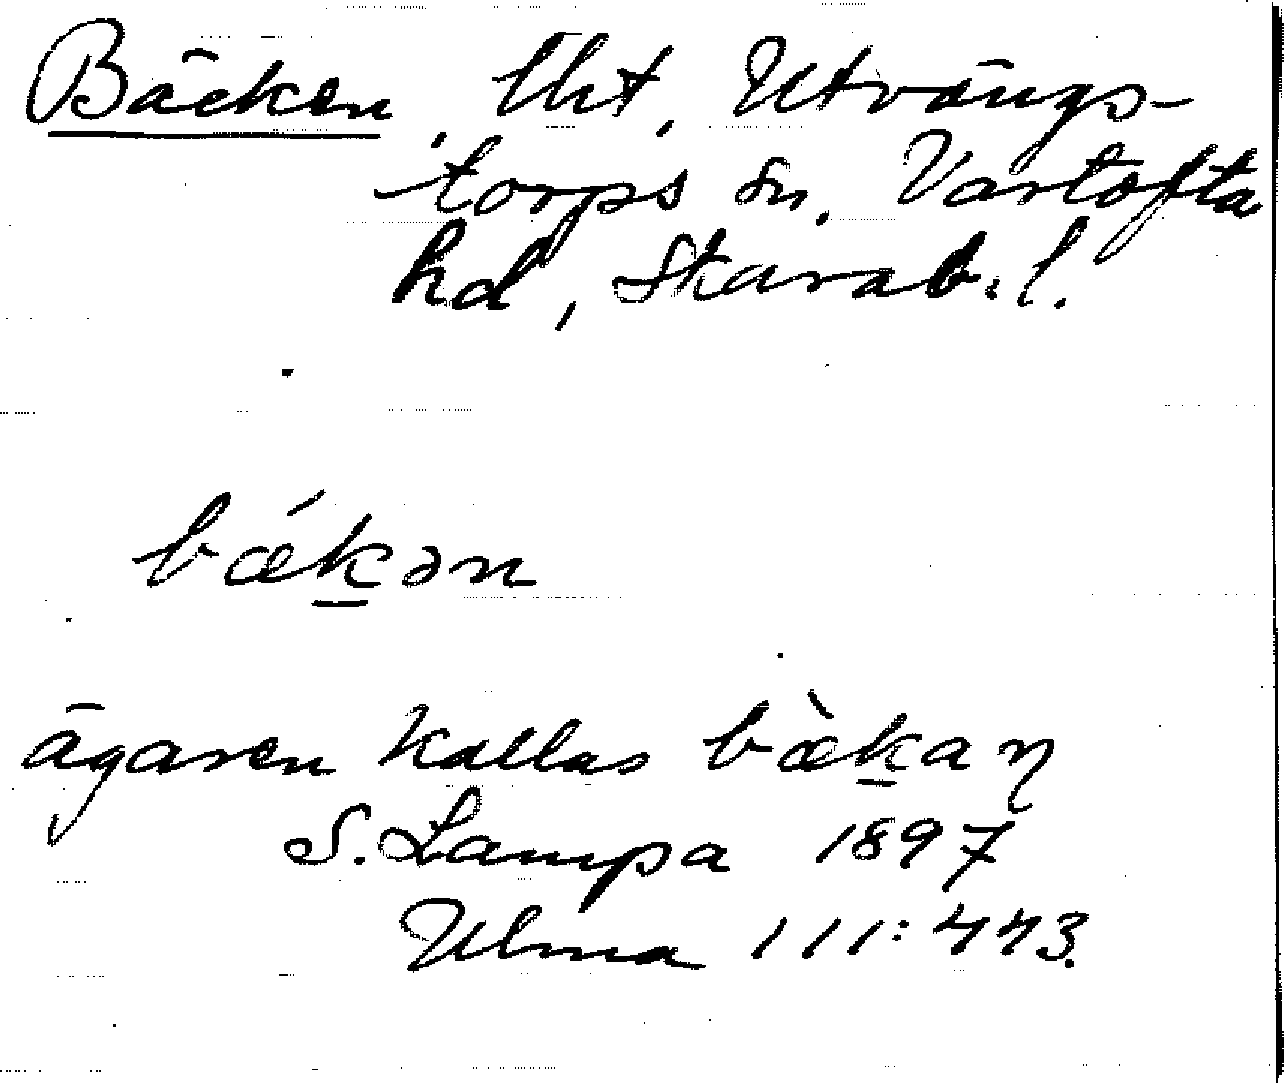 Bäcken, lht, Utvängs-
torps sn, Vartofta
hd, Skarab. l.
bǽk̲ən
ägaren kallas bæ̀k̲aŋ
S. Lampa 1897
Ulma 111:443.